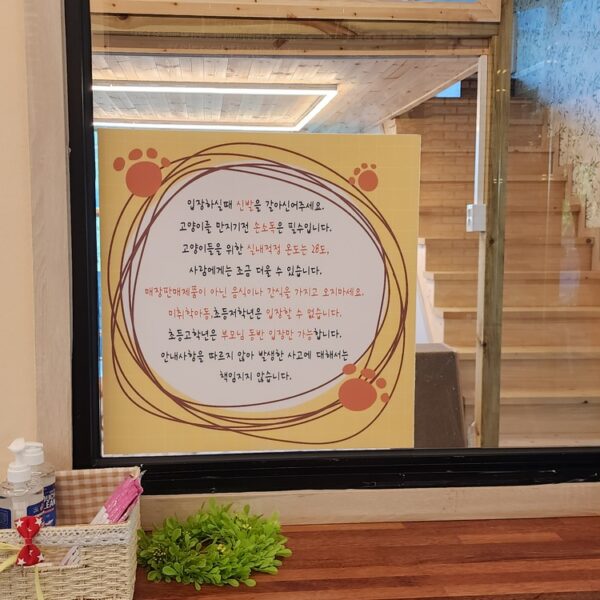 입장하실때 신발을 갈아신어주세요.
고양이를 만지기전 손소독은 필수입니다.
고양이들을 위한 실내적정 온도는 28도,
사람에게는 조금 더울 수 있습니다.
매장판매제품이 아닌 음식이나 간식을 가지고 오지마세요.
미취학아동,초등저학년은 입장할 수 없습니다.
초등고학년은 부모님 동반 입장만 가능합니다.
안내사항을 따르지 않아 발생한 사고에 대해서는
책임지지 않습니다.